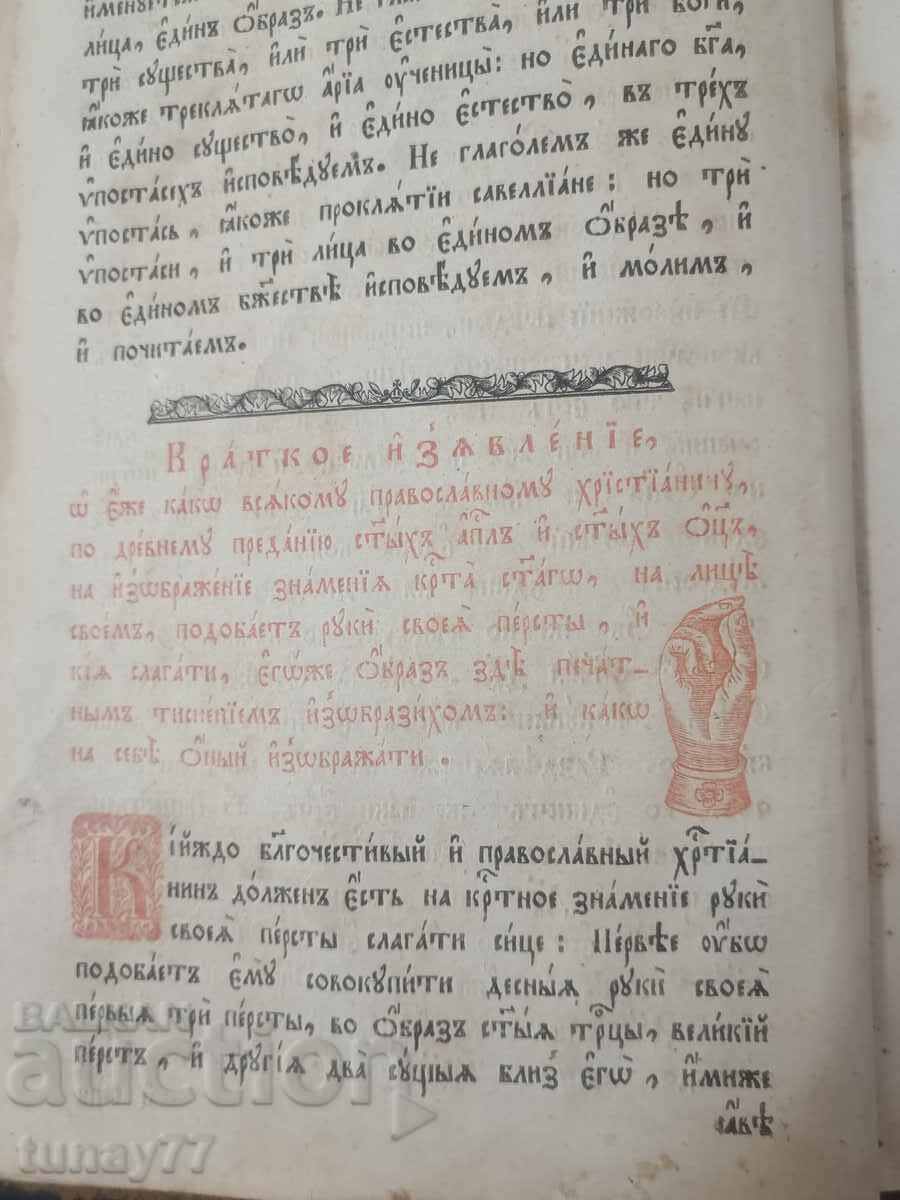 лица̀, є҆ди́нъ ѻ҆́бразъ. Не
трѝ существа̀, и҆лѝ трѝ є҆стества̀, и҆лѝ трѝ бо́ги,
ꙗ҆́коже треклѧ́тагѡ а҆́рїа ᲂу҆ченицы̀: но є҆ди́наго бг҃а,
и҆ є҆ди́но существо̀, и҆ є҆ди́но є҆стество̀, въ тре́хъ
ѵ҆поста́сехъ и҆сповѣ́дуемъ. Не глаго́лемъ же є҆ди́ну
ѵ҆поста́сь, ꙗ҆́коже проклѧ́тїи савеллїа́не: но трѝ
ѵ҆поста́си, и҆ трѝ ли́ца во є҆ди́номъ ѻ҆́бразѣ, и҆
во є҆ди́номъ бж҃ествѣ̀ и҆сповѣ́дуемъ, и҆ мо́лимъ,
и҆ почита́емъ.
Кра́ткое и҆з̾ѧвле́нїе,
ѡ҆ є҆́же ка́кѡ всѧ́кому правосла́вному хрїстїа́нину,
по дре́внему преда́нїю ст҃ы́хъ а҆пⷭ҇лъ и҆ ст҃ы́хъ ѻ҆ц҃ъ,
на и҆з̾ѡбраже́нїе зна́менїѧ крⷭ҇та̀ ст҃а́гѡ, на лицѣ̀
свое́мъ, подоба́етъ рукѝ своеѧ̀ пе́рсты, и҆
кі́ѧ слага́ти, є҆гѡ́же ѻ҆́бразъ здѣ̀ печат-
нымъ тисне́нїемъ и҆з̾ѡбрази́хомъ: и҆ ка́кѡ
на себѣ̀ ѻ҆́ный и҆з̾ѡбража́ти.
Кі́йждо бл҃гочести́вый и҆ правосла́вный хрⷭ҇тїа́-
нинъ до́лженъ є҆́сть на крⷭ҇тное зна́менїе рукѝ
своеѧ̀ пе́рсты слага́ти си́це: Пе́рвѣе ᲂу҆́бѡ
подоба́етъ є҆мꙋ̀ совокупи́ти десны́ѧ рукѝ своеѧ̀
пе́рвыѧ трѝ пе́рсты, во ѻ҆́бразъ ст҃ы́ѧ трⷪ҇цы, вели́кїй
пе́рстъ, и҆ другі́ѧ два̀ су́щыѧ бли́з̾ є҆гѡ̀, и҆́миже
ꙗ҆́вѣ
BALKAN
auction
tunay77